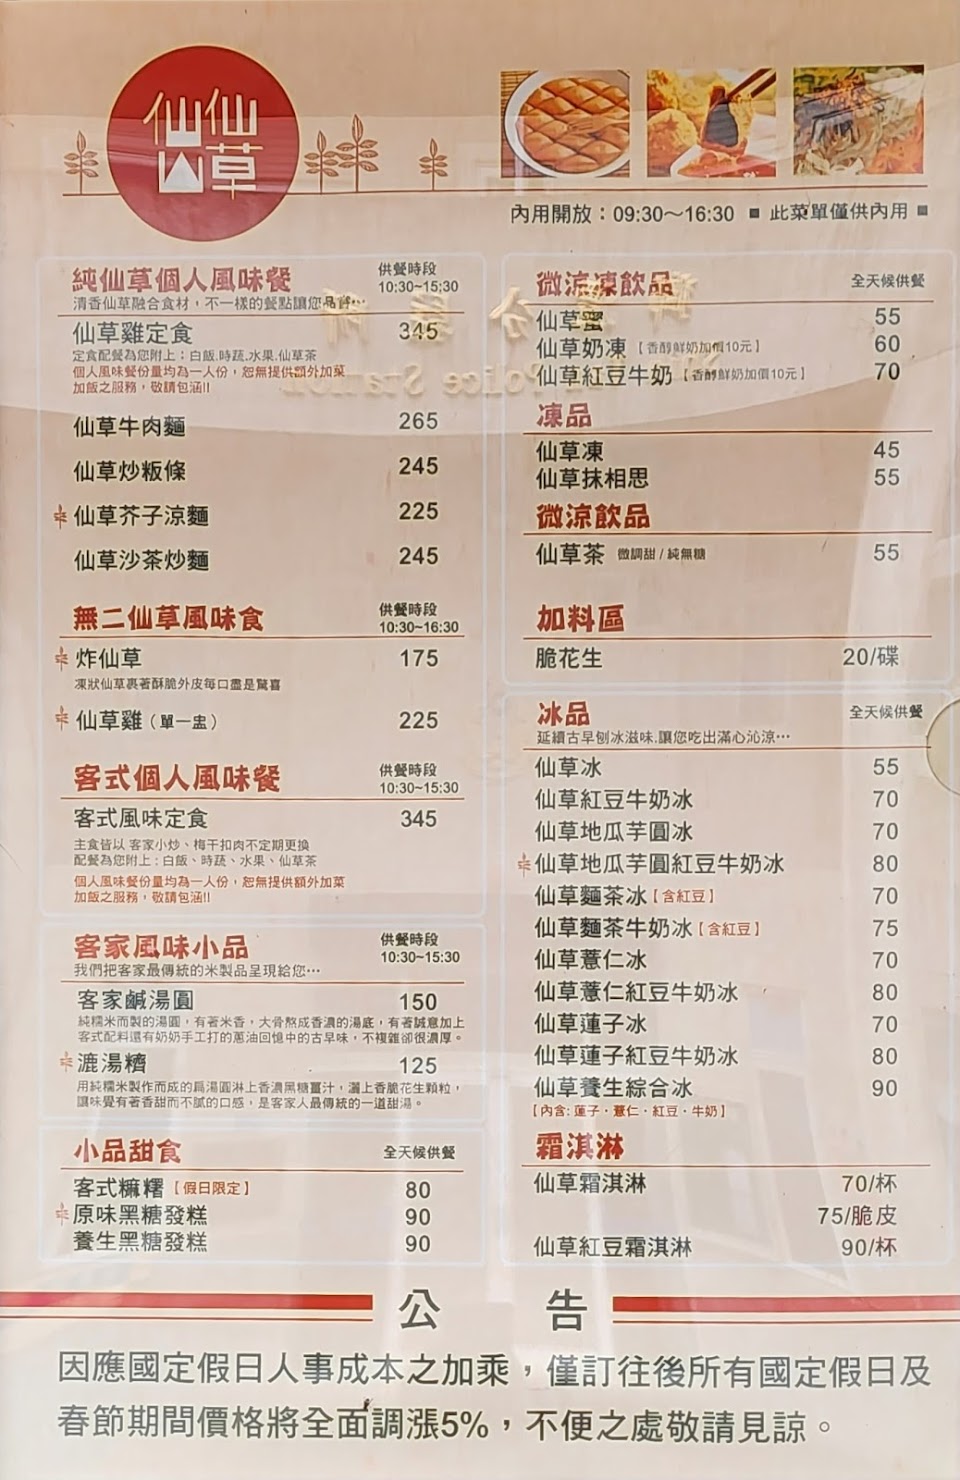 仙山仙草
內用開放：09:30～16:30 ■ 此菜單僅供內用 ■
純仙草個人風味餐
供餐時段
10:30~15:30
清香仙草融合食材，不一樣的餐點讓您品嘗…
仙草雞定食 345
定食配餐為您附上：白飯.時蔬.水果.仙草茶
個人風味餐份量均為一人份，恕無提供額外加菜
加飯之服務，敬請包涵!!
仙草牛肉麵 265
仙草炒粄條 245
仙草芥子涼麵 225
仙草沙茶炒麵 245
無二仙草風味食
供餐時段
10:30~16:30
炸仙草 175
凍狀仙草裹著酥脆外皮每口盡是驚喜
仙草雞（單一盅） 225
客式個人風味餐
供餐時段
10:30~15:30
客式風味定食 345
主食皆以 客家小炒、梅干扣肉不定期更換
配餐為您附上：白飯、時蔬、水果、仙草茶
個人風味餐份量均為一人份，恕無提供額外加菜
加飯之服務，敬請包涵!!
客家風味小品
供餐時段
10:30~15:30
我們把客家最傳統的米製品呈現給您…
客家鹹湯圓 150
純糯米而製的湯圓，有著米香，大骨熬成香濃的湯底，有著誠意加上
客式配料還有奶奶手工打的蔥油回憶中的古早味，不複雜卻很濃厚。
漉湯糍 125
用純糯米製作而成的扁湯圓淋上香濃黑糖薑汁，灑上香脆花生顆粒，
讓味覺有著香甜而不膩的口感，是客家人最傳統的一道甜湯。
小品甜食 全天候供餐
客式麻糬【假日限定】 80
原味黑糖發糕 90
養生黑糖發糕 90
微涼凍飲品 全天候供餐
仙草蜜 55
仙草奶凍【香醇鮮奶加價10元】 60
仙草紅豆牛奶【香醇鮮奶加價10元】 70
凍品
仙草凍 45
仙草抹相思 55
微涼飲品
仙草茶 微調甜 / 純無糖 55
加料區
脆花生 20/碟
冰品 全天候供餐
延續古早刨冰滋味.讓您吃出滿心沁涼…
仙草冰 55
仙草紅豆牛奶冰 70
仙草地瓜芋圓冰 70
仙草地瓜芋圓紅豆牛奶冰 80
仙草麵茶冰【含紅豆】 70
仙草麵茶牛奶冰【含紅豆】 75
仙草薏仁冰 70
仙草薏仁紅豆牛奶冰 80
仙草蓮子冰 70
仙草蓮子紅豆牛奶冰 80
仙草養生綜合冰 90
【內含: 蓮子・薏仁・紅豆・牛奶】
霜淇淋
仙草霜淇淋 70/杯
75/脆皮
仙草紅豆霜淇淋 90/杯
公告
因應國定假日人事成本之加乘，僅訂往後所有國定假日及
春節期間價格將全面調漲5%，不便之處敬請見諒。